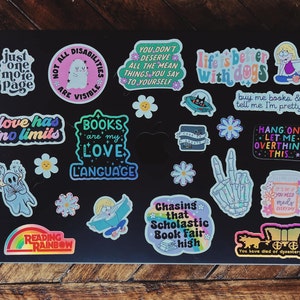 just
one
more
page
NOT ALL DISABILITIES
ARE VISIBLE
YOU DON'T
DESERVE
ALL THE MEAN
THINGS YOU SAY
TO YOURSELF
life is better
with dogs
buy me books &
tell me I'm pretty
love has
no limits
BOOKS
are my
LOVE
LANGUAGE
HANG ON
LET ME
OVERTHINK
THIS
Chasing
that
Scholastic
Book Fair
high
READING
RAINBOW
You have died of dysentery